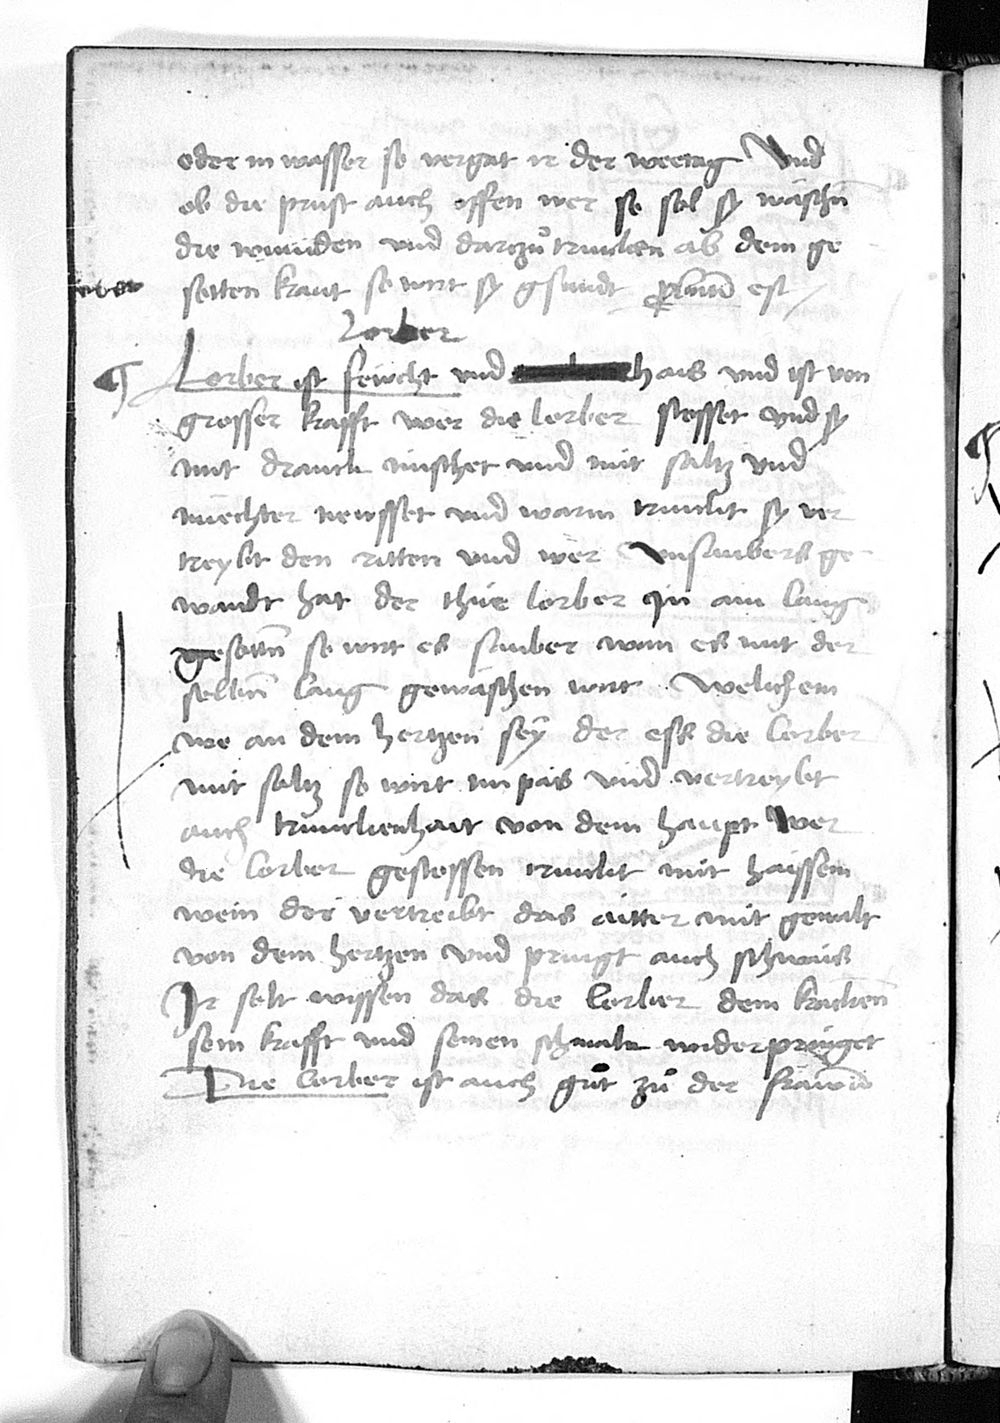 oder in wasser so vergat ir der weetag Und
ob die prust auch offen wer so sol sy wäschn̄
die wunden und darzů trincken ab dem ge
sotten kraut so wirt sy gsundt est
Lorber
Lorber ist feücht und hais und ist von
grosser krafft wer die lorber stosset und sy
mit dranck mischet und mit saltz und
nüechter neusset und warm trinckt sy ver
treybt den ritten und wer Unsaubers ge
wandt hat der thüe lorber jn ain laug
gesottn̄ so wirt es sauber wan es mit der
selbn̄ laug gewäschen wirt Welichem
we an dem hertzen seÿ der ess die lorber
mit saltz so wirt im pas und vertreybt
auch trunckenhait von dem haupt Wer
die lorber gestossen trinckt mit haissem
wein der vertreibt das aitter mit gewalt
von dem hertzen und pringt auch schwais
Ir solt wissen das die lorber dem krancken̄
sein krafft und seinen schmack widerpringet
Die lorber ist auch gůt zů der frawn̄